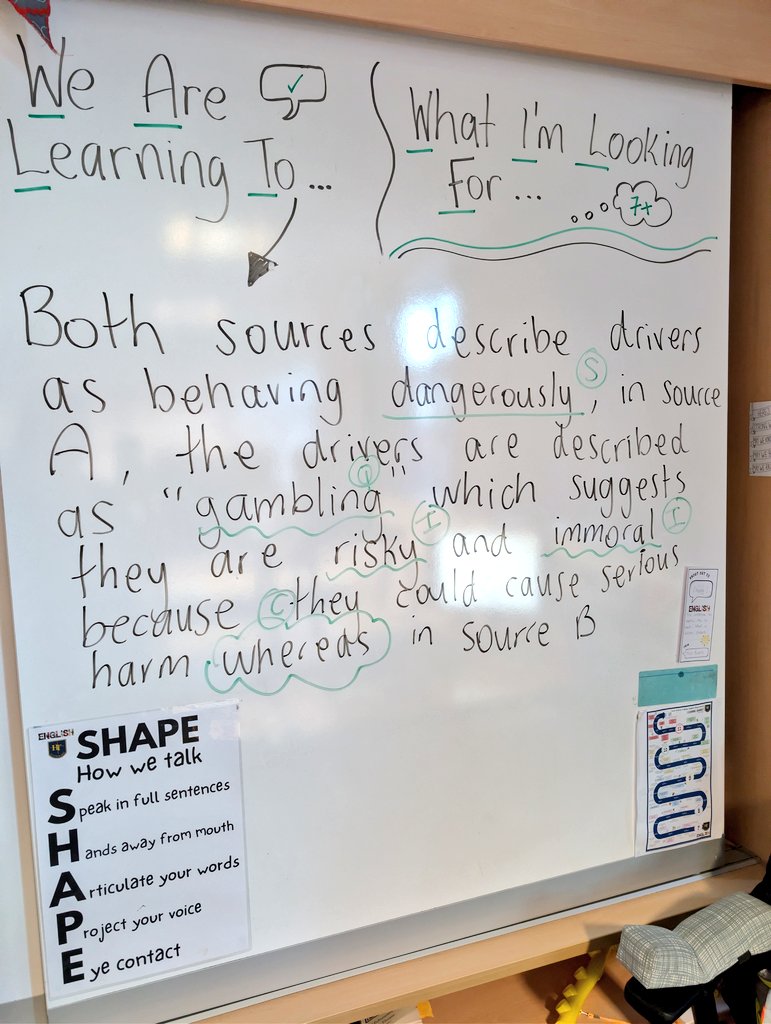 We Are
Learning To...
What I'm Looking
For...
7+
Both sources describe drivers
as behaving dangerously, in source
S
A, the drivers are described
as "gambling" which suggests
Q
they are risky and immoral
I
I
because they could cause serious
C
harm whereas in source B
ENGLISH
SHAPE
How we talk
Speak in full sentences
Hands away from mouth
Articulate your words
Project your voice
Eye contact
ENGLISH